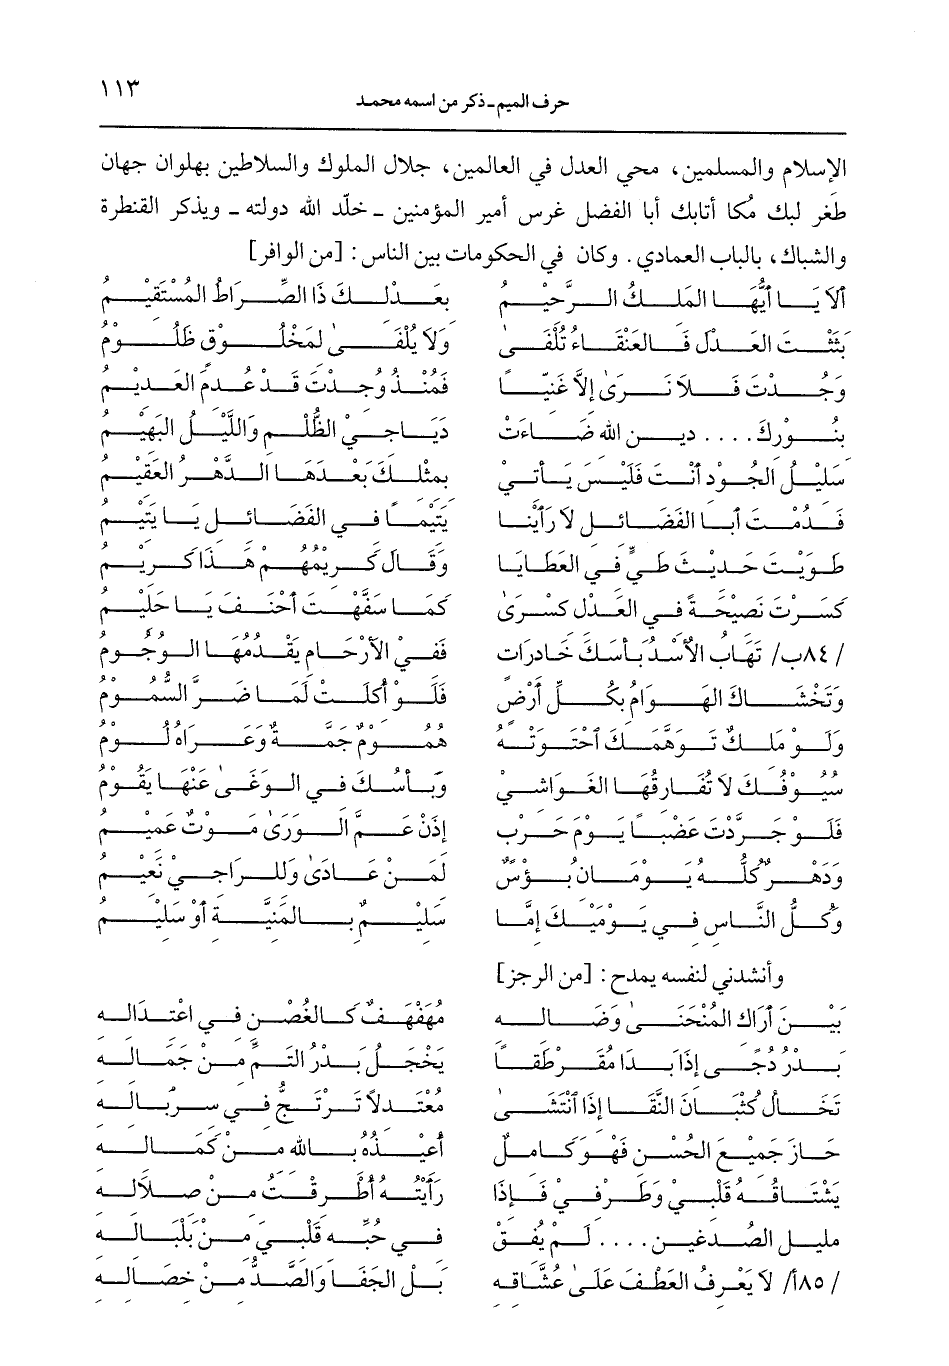 حرف الميم ـ ذكر من اسمه محمد
١١٣
الإسلام والمسلمين، محي العدل في العالمين، جلال الملوك والسلاطين بهلوان جهان
طغر لبك مُكا أتابك أبا الفضل غرس أمير المؤمنين ـ خلّد الله دولته ـ ويذكر القنطرة
والشباك، بالباب العمادي. وكان في الحكومات بين الناس: [من الوافر]
ألاَ يَا أَيُّهَا المَلكُ الرَّحيْمُ بعَدْلكَ ذَا الصِّرَاطُ المُسْتَقيْمُ
بَثَثْتَ العَدْلَ فَالعَنْقَاءُ تُلْفَىْ وَلاَ يُلْفَىْ لمَخْلُوْق ظَلُوْمُ
وَجُدْتَ فَلاَ نَرَىْ إلاَّ غَنيّاً فَمُنْذُ وُجدْتَ قَدْ عَدمَ العَديْمُ
بنُوْركَ.... ديْن الله ضَاءَتْ دَيَاجيْ الظُّلْم وَاللَّيْلُ البَهيْمُ
سَليْلُ الجُوْد أَنْتَ فَلَيْسَ يَأتيْ بمثْلكَ بَعْدَهَا الدَّهْرُ العَقيْمُ
قَدُمْتَ أَبَا الفَضَائل لاَ رَأَيْنَا يَتيْماً في الفَضَائل يَا يَتيْمُ
طَوَيْتَ حَديْثَ طَيٍّ في العَطَايَا وَقَالَ كَريْمُهُمْ هَذَا كَريْمُ
كَسَرْتَ نَصيْحَةً في العَدْل كسْرَىْ كَمَا سَفَّهْتَ أَحْنَفَ يَا حَليْمُ
/ ٨٤ب/ تَهَابُ الأُسْدُ بَأسَكَ خَادرَات فَفيْ الأَرْحَام يَقْدمُهَا الوُجُوْمُ
وَتَخْشَاكَ الهَوَامُ بكُلِّ أَرْض فَلَوْ أَكَلَتْ لَمَا ضَرَّ السُّمُوْمُ
وَلَوْ مَلكٌ تَوَهَّمَكَ احْتَوَتْهُ هُمُوْمٌ جَمَّةٌ وَعَرَاهُ لُوْمُ
سُيُوْفُكَ لاَ تُفَارقُهَا الغَوَاشيْ وَبَأسُكَ في الوَغَىْ عَنْهَا يَقُوْمُ
فَلَوْ جَرَّدْتَ عَضْباً يَوْمَ حَرْب إذَنْ عَمَّ الوَرَىْ مَوْتٌ عَميْمُ
وَدَهْرٌ كُلُّهُ يَوْمَان بُؤْسٌ لمَنْ عَادَىْ وَللرَاجيْ نَعيْمُ
وَكُلُّ النَّاس في يَوْمَيْكَ إمَّا سَليْمٌ بالمَنيَّة أَوْ سَليْمُ
وأنشدني لنفسه يمدح: [من الرجز]
بَيْنَ أَرَاك المُنْحَنَىْ وَضَاله مُهَفْهَفٌ كَالغُصْن في اعْتدَاله
بَدْرُ دُجًى إذَا بَدَا مُقَرْطَقاً يَخْجَلُ بَدْرُ التَّمِّ منْ جَمَاله
تَخَالُ كُثْبَانَ النَّقَا إذَا انْثَنَىْ مُعْتَدلاً تَرْتَجُّ في سرْبَاله
حَازَ جَميْعَ الحُسْن فَهْوَ كَاملٌ أُعيْذُهُ بالله منْ كَمَاله
يَشْتَاقُهُ قَلْبيْ وَطَرْفيْ فَإذَا رَأَيْتُهُ أَطْرَقْتُ منْ صَلاَله
مليل الصُدغين.... لَمْ يُفقْ في حُبِّه قَلْبيَ منْ بَلْبَاله
/ ٨٥أ/ لاَ يَعْرفُ العَطْفَ عَلَىْ عُشَّاقه بَل الجَفَا وَالصَّدُّ منْ خصَاله